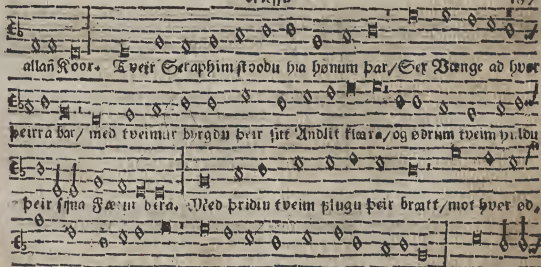 allan̄ Koor. Tveir Seraphim stoodu hia honum þar/ Sex Vænge ad hver
þeirra bar/ med tveimur byrgdu þeir sitt Andlit klaara/ og ødrum tveim huldu
þeir sijna Fætur bera. Med þridiu tveim flugu þeir bratt/ mot hver ød,